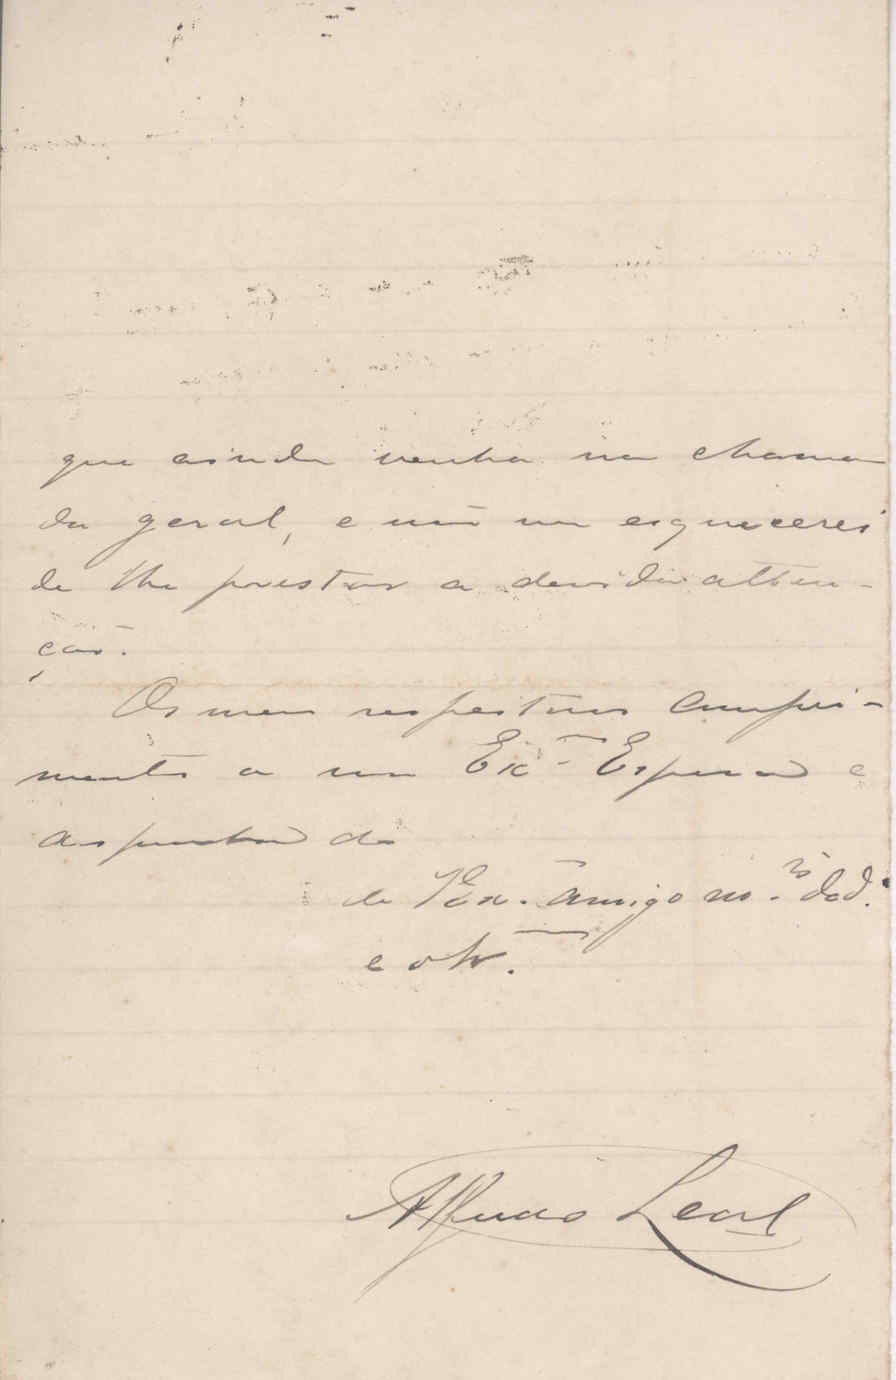 que ainda venha na chama
da geral, e não me esquecerei
de lhe prestar a devida atten-
ção.
Os meus respeitosos cumpri-
mentos a sua Exª Esposa e
disponha do
de VExª amigo mº dedº
e obrº
Alfredo Leal